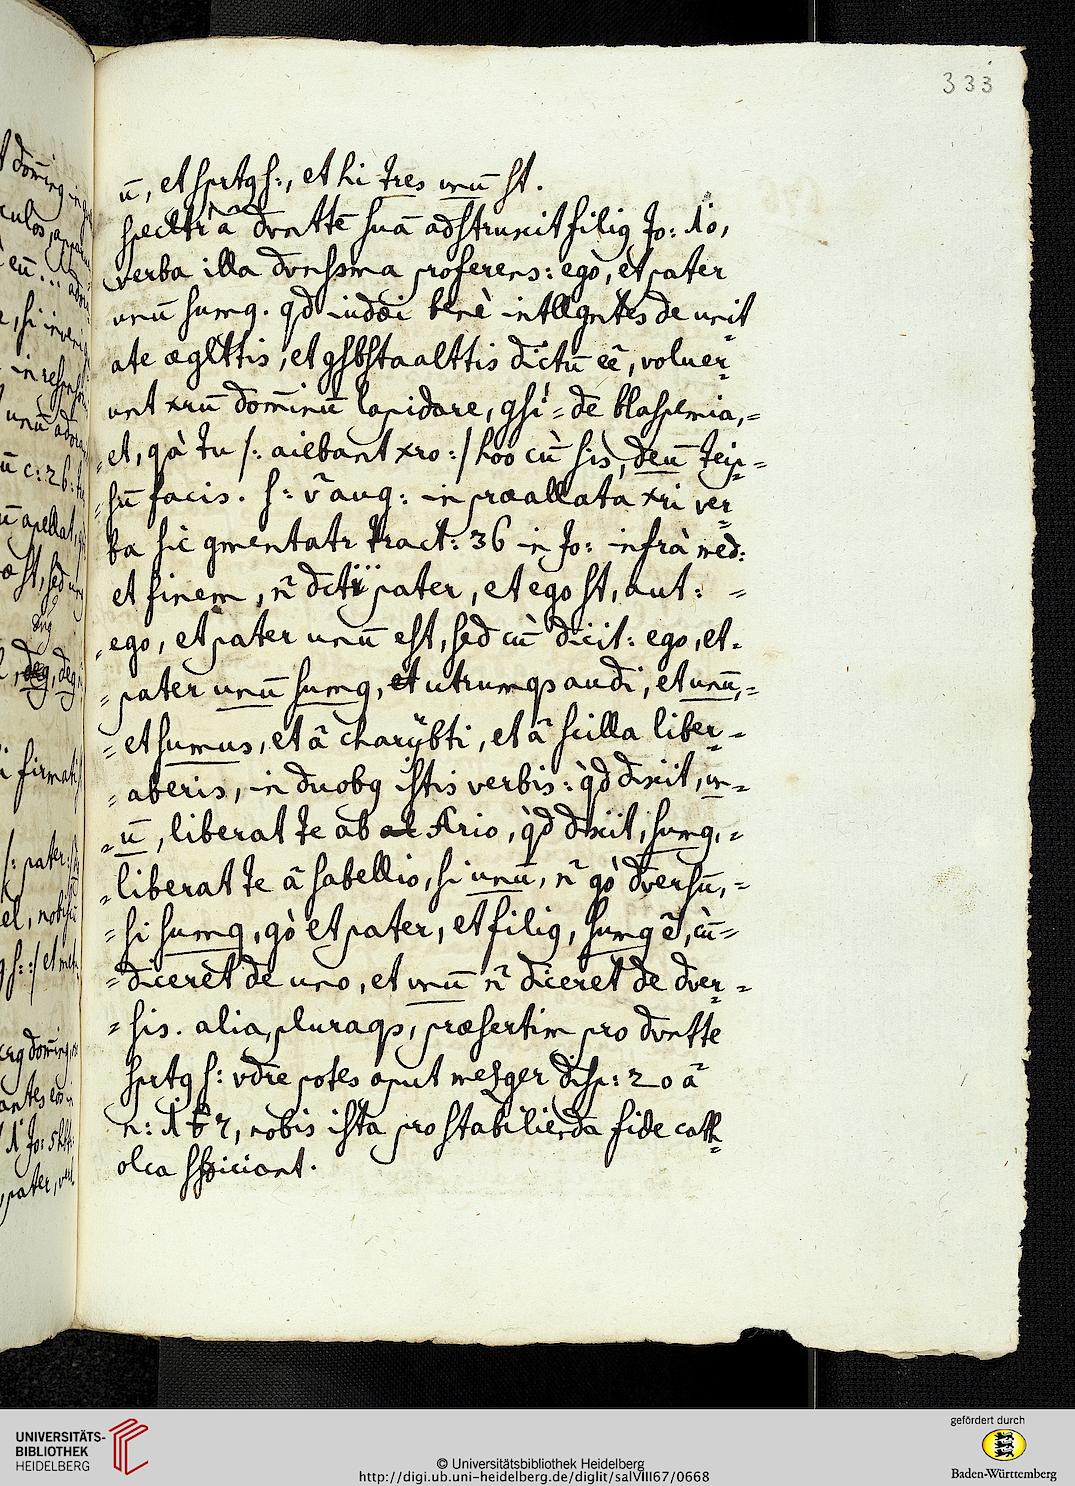 333
ū, et sprtq s:, et hi tres unū st.
spectr ã dvntte suã adstruxit filiq Jo: 10,
verba illa dvnssma proferens: ego, et pater
unū sumq. qd iudæi benè intllgntes de unit
ate æglttis, et qsbstaalttis dictū eẽ, voluer=
unt xrū dominū lapidare, qsi = de blasphemia, =
= et, qà tu /: aiebant xro :/ hoo cù sis, deū teip=
= sū facis. s: v̄ aug: in præallata xri ver=
ba sic qmentatr tract: 36 in Jo: infrà med:
et finem, ñ dctr pater, et ego st, aut: =
= ego, et pater unū est, sed cù dicit: ego, et-
= pater unū sumq, et utrumqs audi, et unū, =
= et sumus, et ã charÿbti, et ã scilla liber=
= aberis, in duobq istis verbis: qd dixit, un=
= ū, liberat te ab Ario, qd dixit, sumq, =
= liberat te ã sabellio, si unū, ñ qò dversū, =
= si sumq, qò et pater, et filiq, sumq ẽ, cù=
= diceret de uno, et unū ñ diceret de dver=
= sis. alia, pluraqs, præsertim pro dvntte
sprtq s: vdre potes aput mezger disp: 20 ã
n: 167, nobis ista pro stabilienda fide cath=
olca sficiant.
UNIVERSITÄTS-
BIBLIOTHEK
HEIDELBERG
© Universitätsbibliothek Heidelberg
http://digi.ub.uni-heidelberg.de/diglit/salVIII67/0668
gefördert durch
Baden-Württemberg